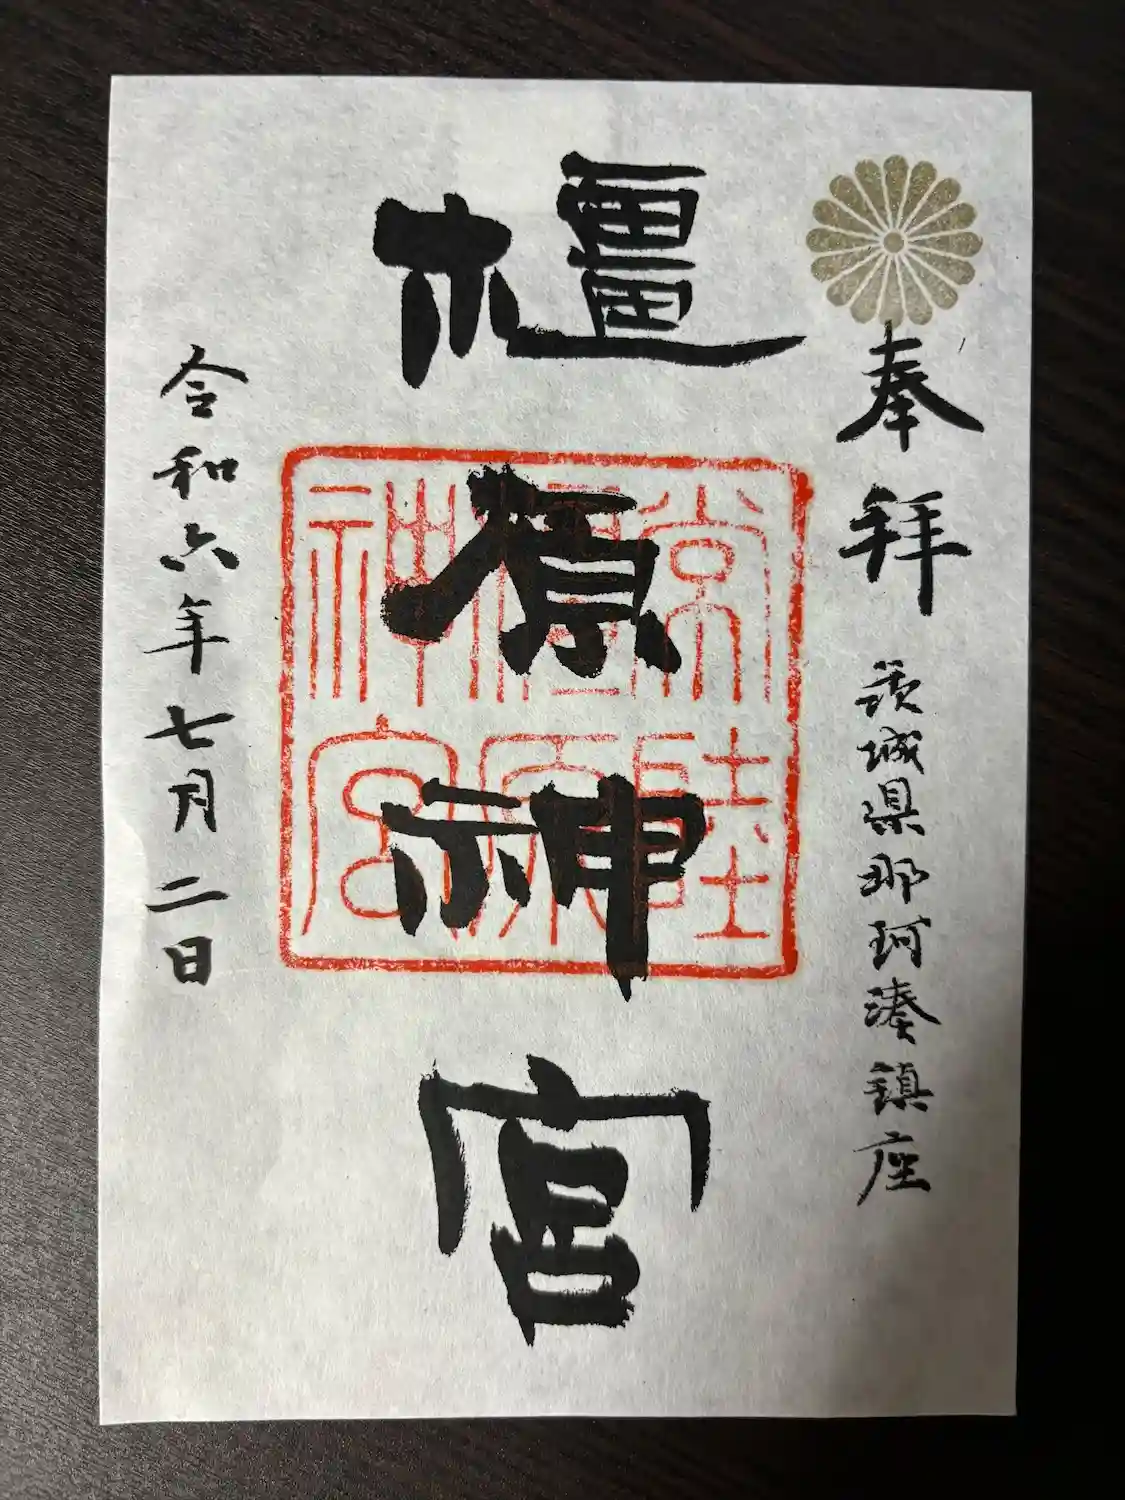 奉拝
茨城県那珂湊鎮座
橿原神宮
常陸
橿原
神宮
令和六年七月二日